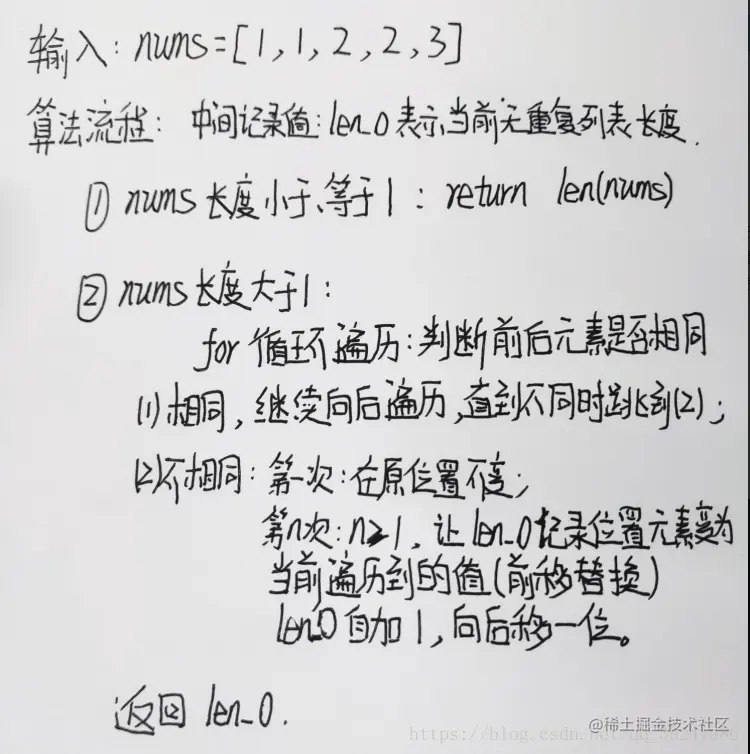 输入: nums=[1,1,2,2,3]
算法流程: 中间记录值: len_0表示当前无重复列表长度.
① nums长度小于等于1: return len(nums)
② nums长度大于1:
for循环遍历: 判断前后元素是否相同
(1)相同, 继续向后遍历, 直到不同时跳到(2);
(2)不相同: 第一次: 在原位置不变;
第n次: n≥1, 让len_0记录位置元素变为
当前遍历到的值(前移替换)
len_0自加1, 向后移一位。
返回 len_0.
@稀土掘金技术社区